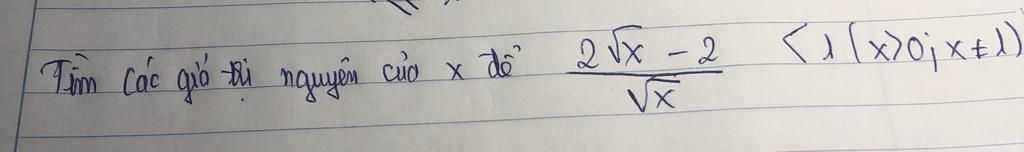 Tìm các giá trị nguyên của x để (2√x - 2)/√x < 1 (x>0; x≠1)